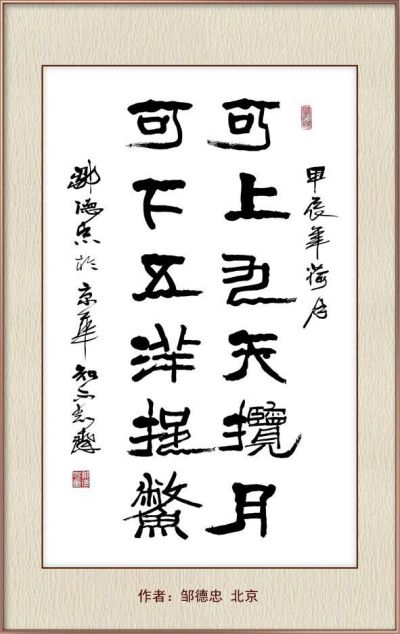 甲辰年荷月
可上九天攬月
可下五洋捉鱉
鄒德忠於京華
作者：邹德忠 北京